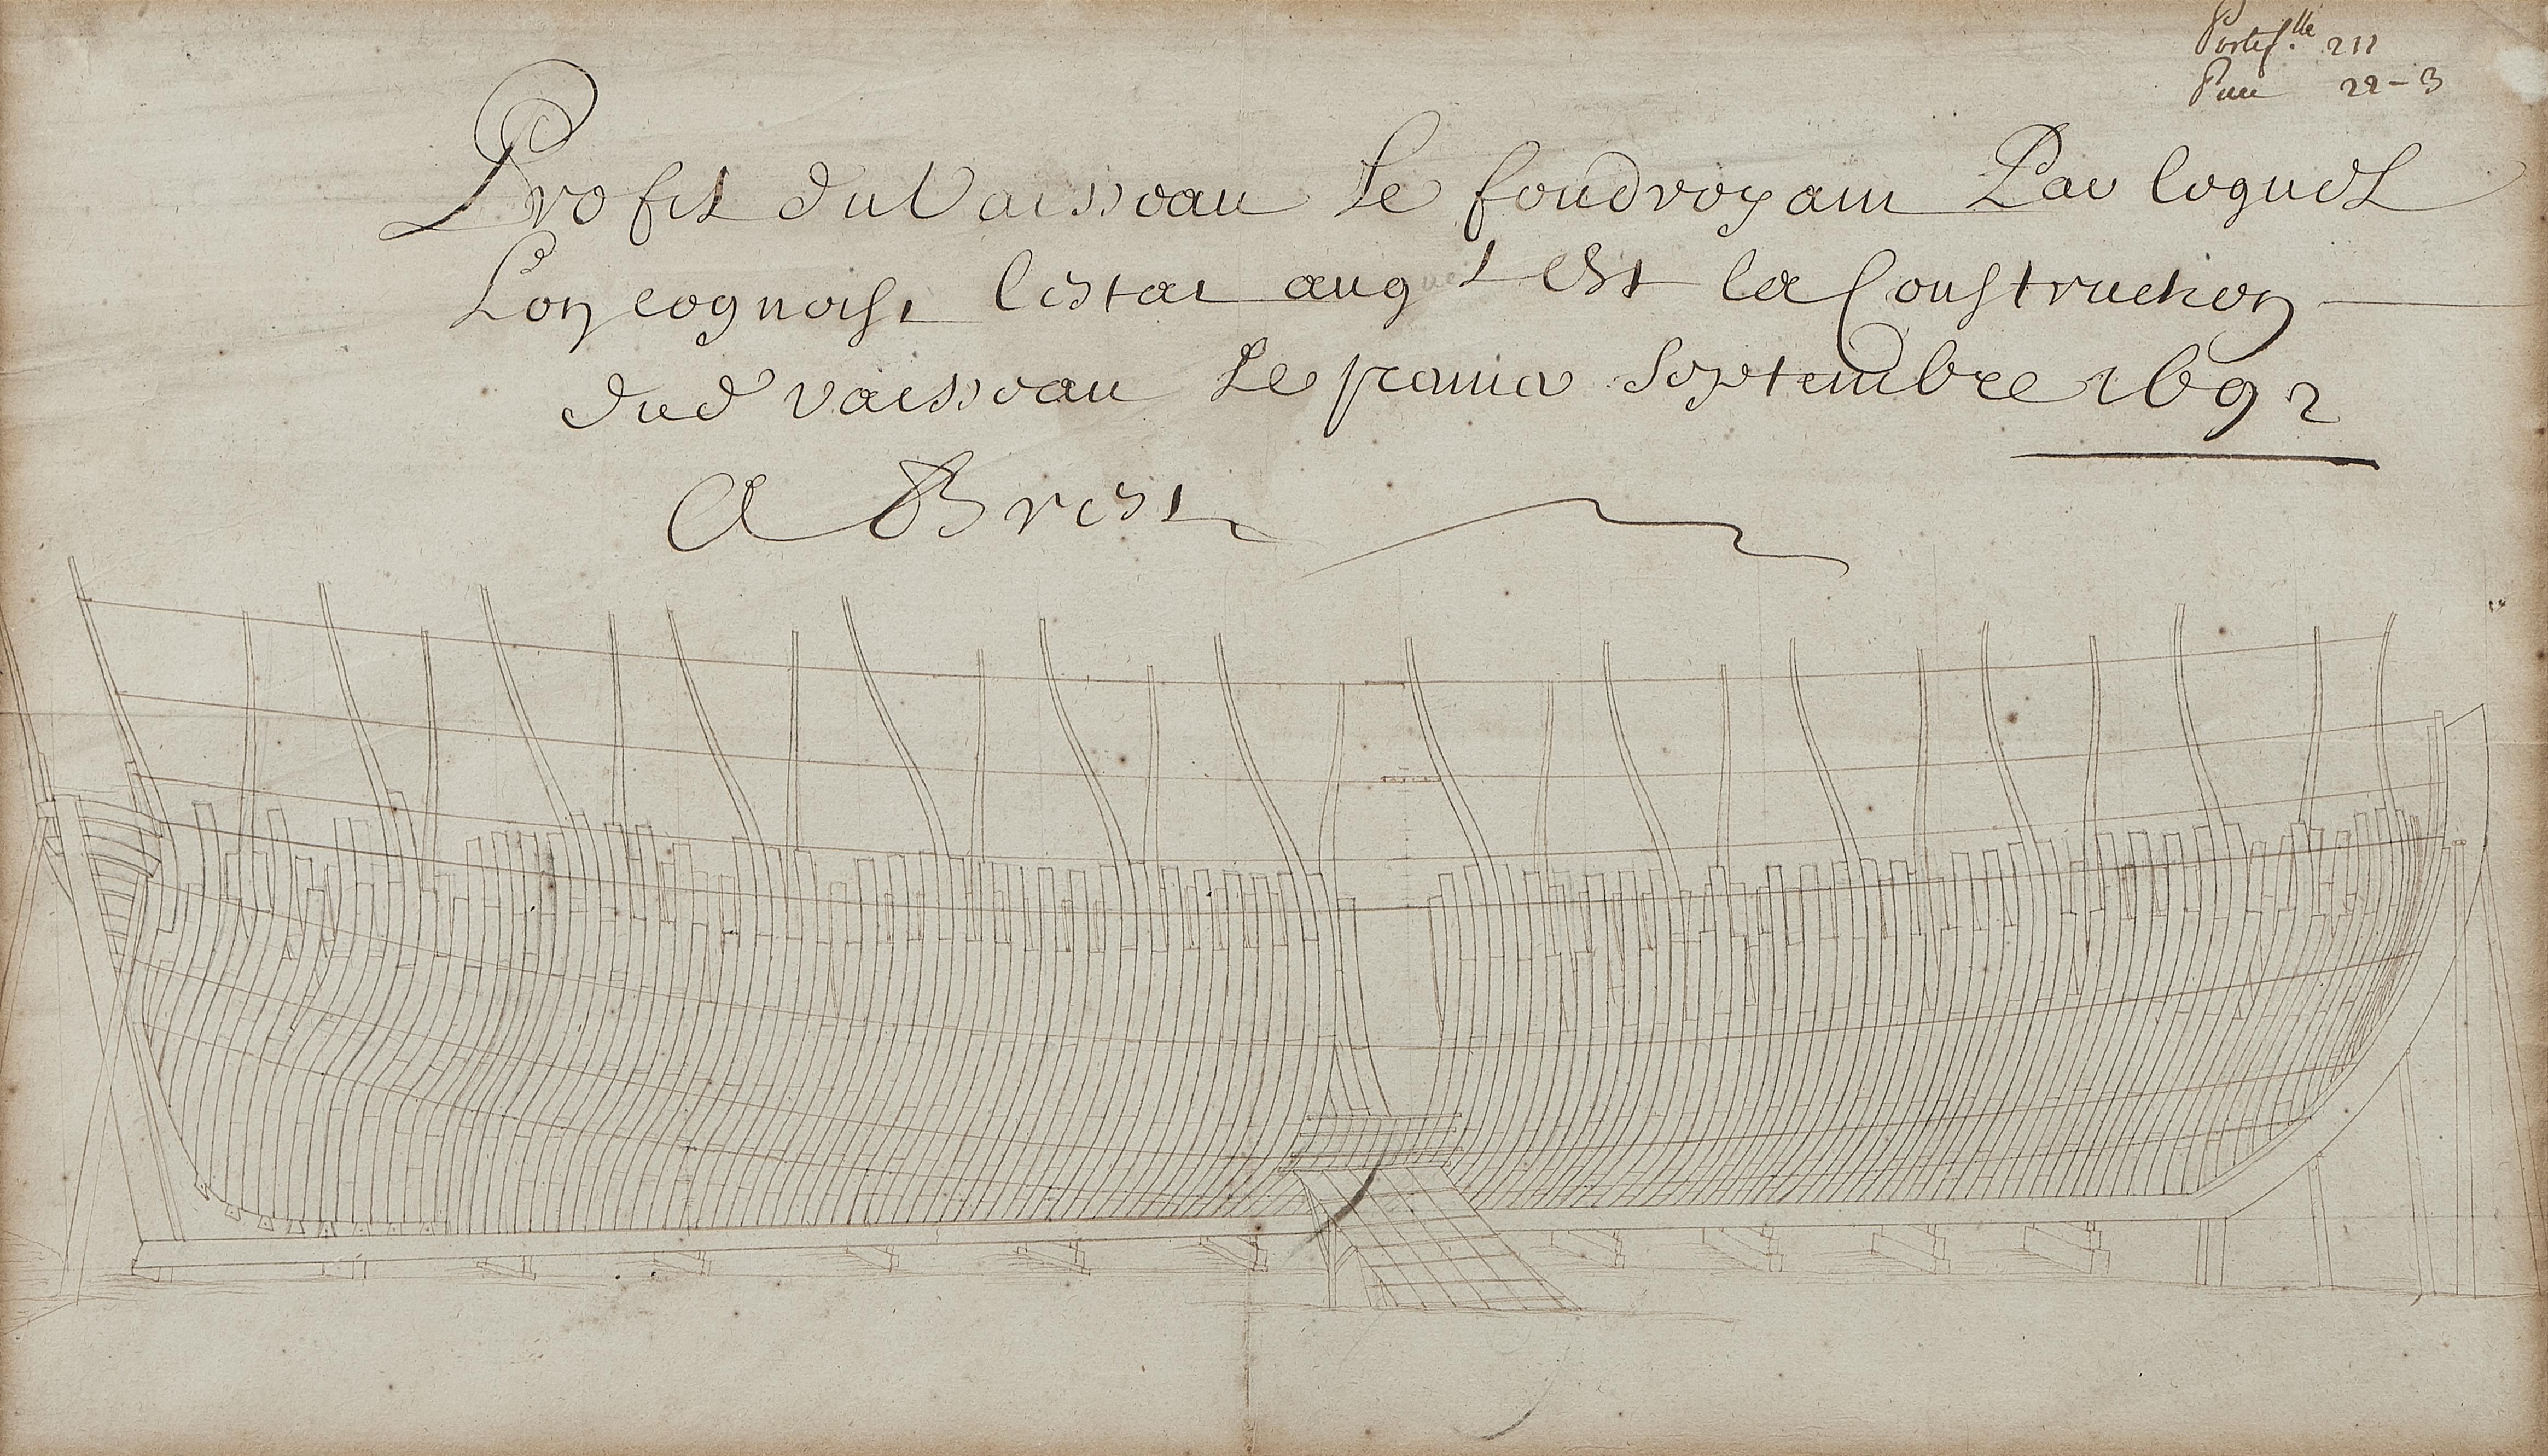 Portef.lle 211
Piece 22-3
Profil du Vaisseau Le foudroyant Par lequel
Lon cognoist lestat auql Est la Construction
dud vaisseau Le premier Septembre 1692
A Brest